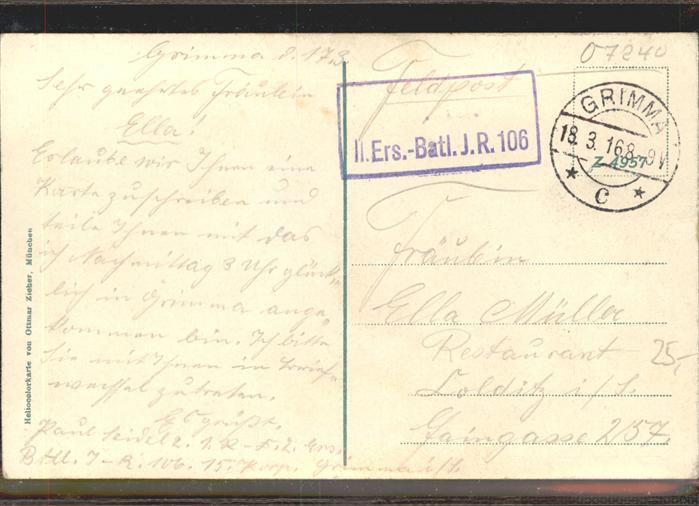 Grimma d. 17.3
Sehr geehrtes Fräulein
Ella!
Erlaube mir Ihnen eine
Karte zuschreiben und
teile Ihnen mit das
ich Nachmittag 3 Uhr glück-
lich in Grimma ange
kommen bin. Ich bitte
Sie mit Ihnen in Brief-
wechsel zutreten.
Es grüßt.
Paul Seidel 2.
Batl. J-R. 106. 15. Korp. Grimma i/S.
Heliocolorkarte von Ottmar Zieher, München
07240
Feldpost
II.Ers.-Batl. J.R. 106
GRIMMA
18.3.16 8-9V
* c *
Z 4957
Fräulein
Ella Müller
Restaurant
25,-
Colditz i/S.
257.